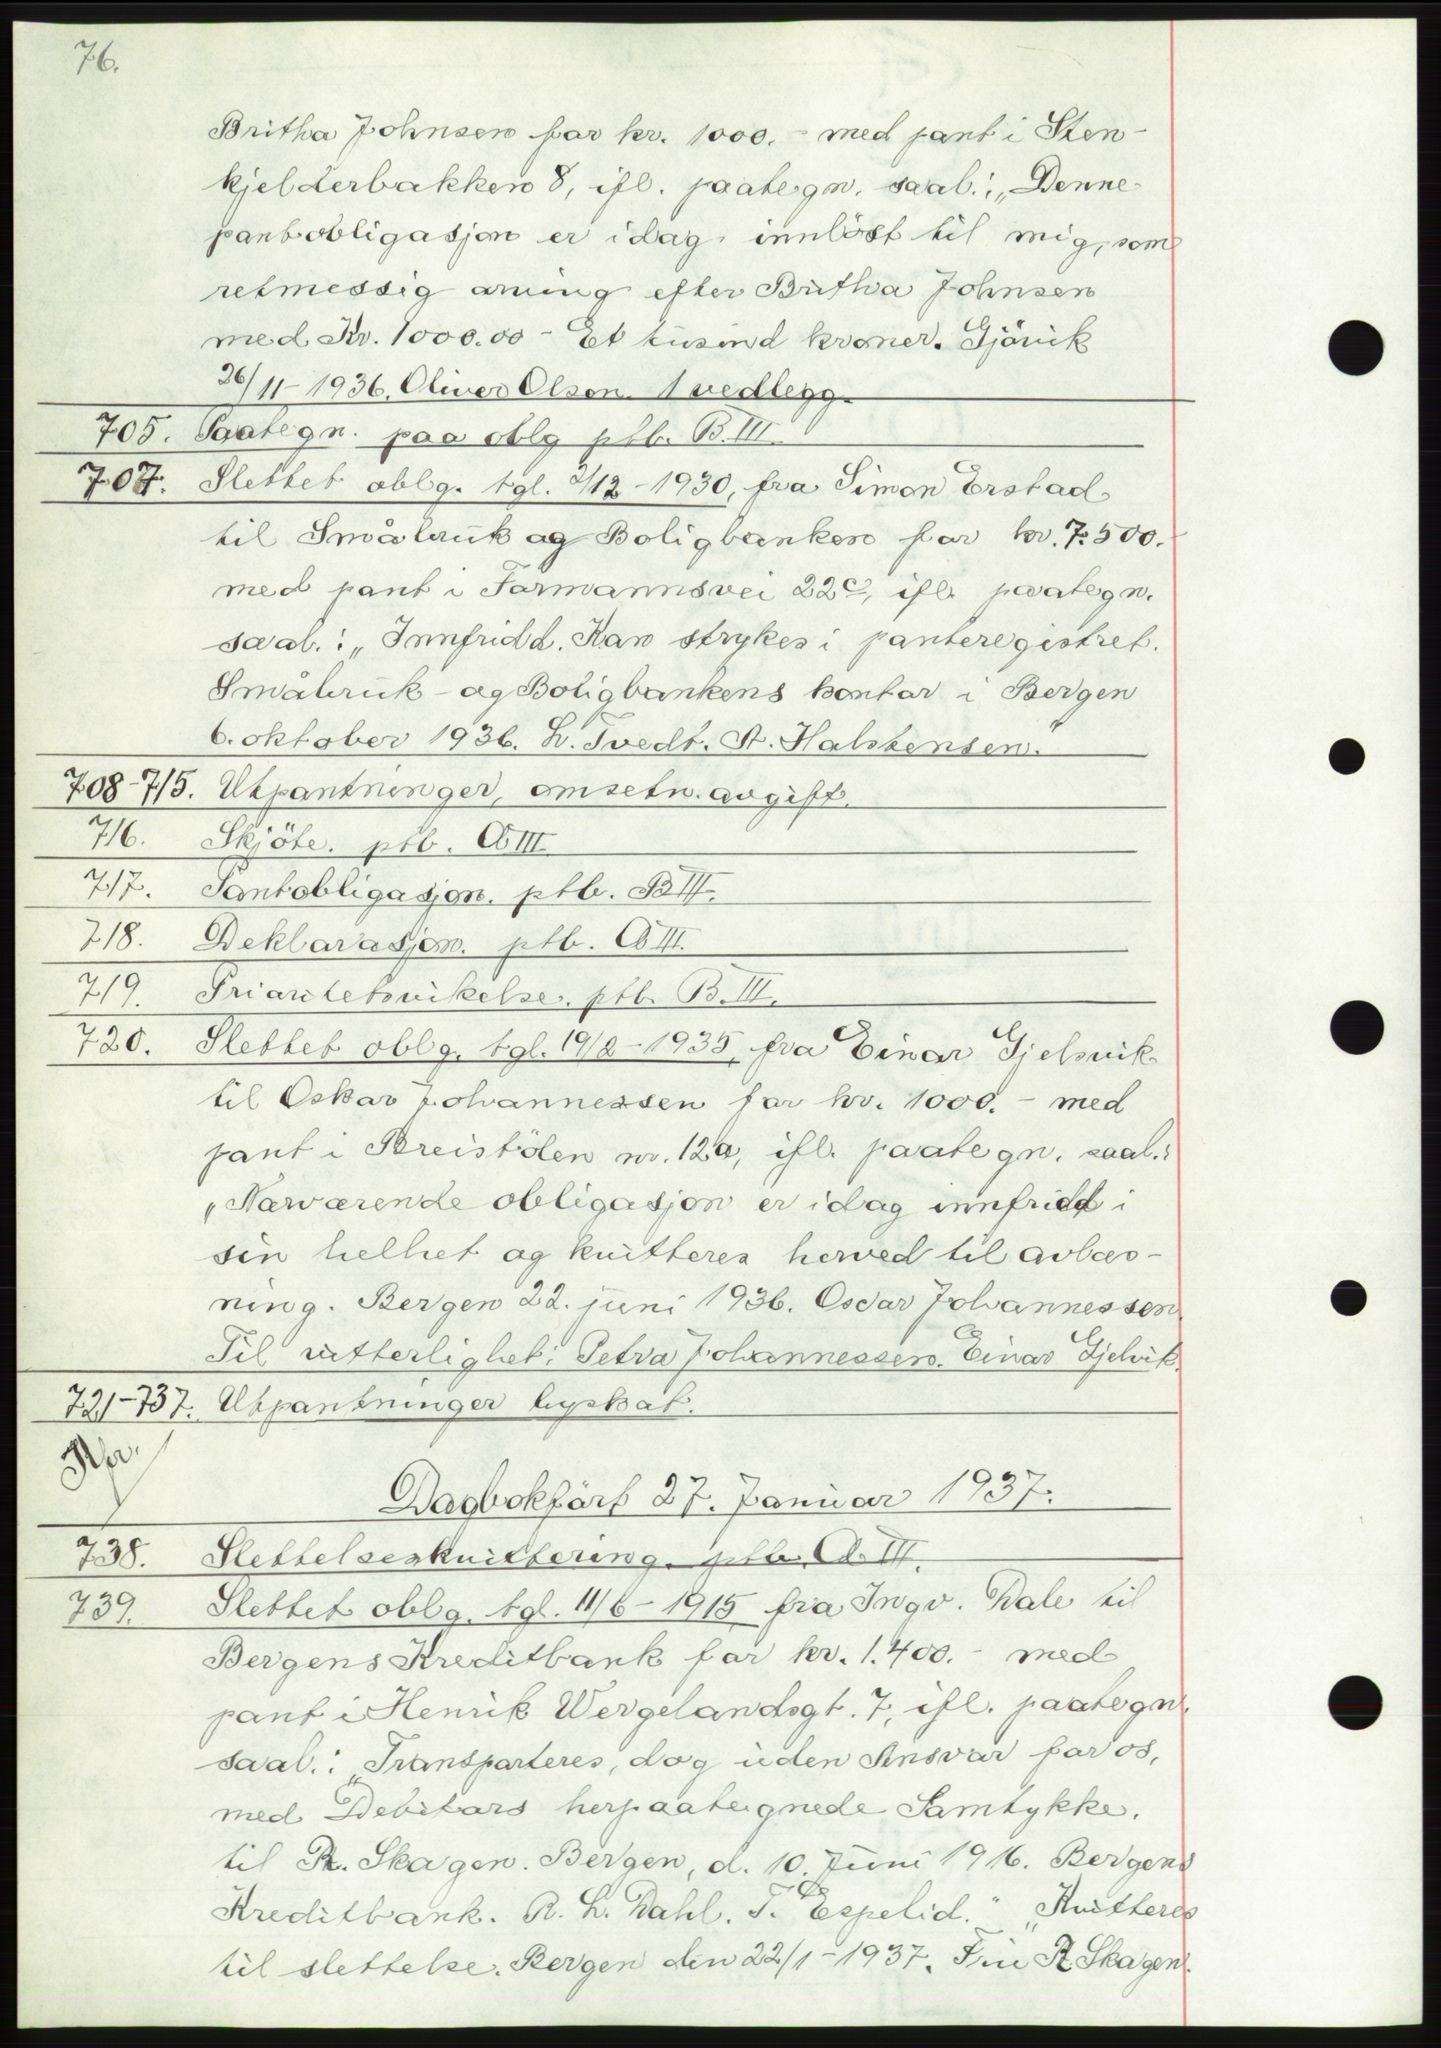 76.
Britha Johnsen for kr. 1000.- med pant i Sten-
kjelderbakken 8, ifl. paategn. saal.: „Denne
pantobligasjon er idag innløst til mig, som
retmessig arving efter Britha Johnsen
med Kr. 1000.00 - Et tusind kroner. Gjövik
26/11-1936. Oliver Olsen. 1 vedlegg.
705. Paategn. paa oblg ptb. B.III.
707. Slettet oblg. tgl. 2/12-1930, fra Simon Erstad
til Småbruk og Boligbanken for kr. 7.500.
med pant i Formannsvei 22c, ifl. paategn.
saal.: „Innfridd. Kan strykes i panteregistret.
Småbruk- og Boligbankens kontor i Bergen
6. oktober 1936. L. Tvedt. A. Halstensen."
708-715. Utpantninger, omsetn. avgift.
716. Skjöte. ptb. A III
717. Pantobligasjon. ptb. B III.
718. Deklarasjon. ptb. A III.
719. Prioritetsvikelse. ptb. B. III.
720. Slettet oblg. tgl. 19/2-1935, fra Einar Gjelsvik
til Oskar Johannessen for kr. 1000.- med
pant i Breistölen nr. 12a, ifl. paategn. saal.:
„Nærværende obligasjon er idag innfridd i
sin helhet og kvitteres herved til avlæs-
ning. Bergen 22. juni 1936. Oscar Johannessen
Til vitterlighet: Petra Johannessen. Einar Gjelvik.
721-737. Utpantninger byskat.
Dagbokfört 27. Januar 1937.
738. Slettelseskvittering. ptb. A. III.
739. Slettet oblg. tgl. 11/6-1915 fra Ingv. Dale til
Bergens Kreditbank for kr. 1.400.- med
pant i Henrik Wergelandsgt. 7, ifl. paategn.
saal.: „Transporteres, dog uden Ansvar for os,
med Debitors herpaategnede Samtykke.
til R. Skagen. Bergen, d. 10. Juni 1916. Bergens
Kreditbank. R. L. Dahl. T. Espelid." „Kvitteres
til slettelse. Bergen den 22/1-1937. R. Skagen.